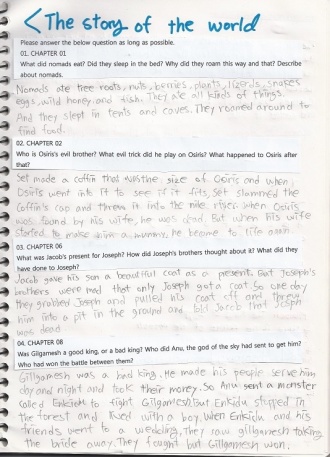 <The story of the world
Please answer the below question as long as possible.
01. CHAPTER 01
What did nomads eat? Did they sleep in the bed? Why did they roam this way and that? Describe
about nomads.
Nomads ate tree roots, nuts, berries, plants, lizerds, snakes
eggs, wild honey, and fish. They ate all kinds of things.
And they slept in tents and caves. They roamed around to
find food.
02. CHAPTER 02
Who is Osiris's evil brother? What evil trick did he play on Osiris? What happened to Osiris after
that?
Set made a coffin that was the size of Osiris and when
Osiris went into it to see if it fits, Set slammed the
coffin's cap and threw it into the nile river. when Osiris
was found by his wife, he was dead. But when his wife
started to make him a mummy, he became to life again.
03. CHAPTER 06
What was Jacob's present for Joseph? How did Joseph's brothers thought about it? What did they
have done to Joseph?
Jacob gave his son a beautiful coat as a present. But Joseph's
brothers were mad that only Joseph got a coat. So one day
they grabbed Joseph and pulled his coat off and threw
him into a pit in the ground and told Jacob that Joseph
was dead
04. CHAPTER 08
Was Gilgamesh a good king, or a bad king? Who did Anu, the god of the sky had sent to get him?
Who had won the battle between them?
Gillgamesh was a bad king. He made his people serve him
day and night and took their money. So Anu sent a monster
called Enkidu to fight Gilgamesh. But Enkidu stopped in
the forest and lived with a boy. When Enkidu and his
friends went to a wedding, They saw gillgamesh taking
the bride away. They fought but Gillgamesh won.